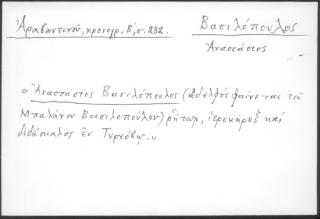 Ἀραβαντινοῦ, χρονογρ., Β΄, σ. 282.
Βασιλόπουλος
Ἀναστάσιος
« Ἀναστάσιος Βασιλόπουλος (ἀδελφός φαίνεται τοῦ
Μπαλάνου Βασιλοπούλου) ρήτωρ, ἱεροκήρυξ καί
διδάσκαλος ἐν Τυρνόβῳ. »